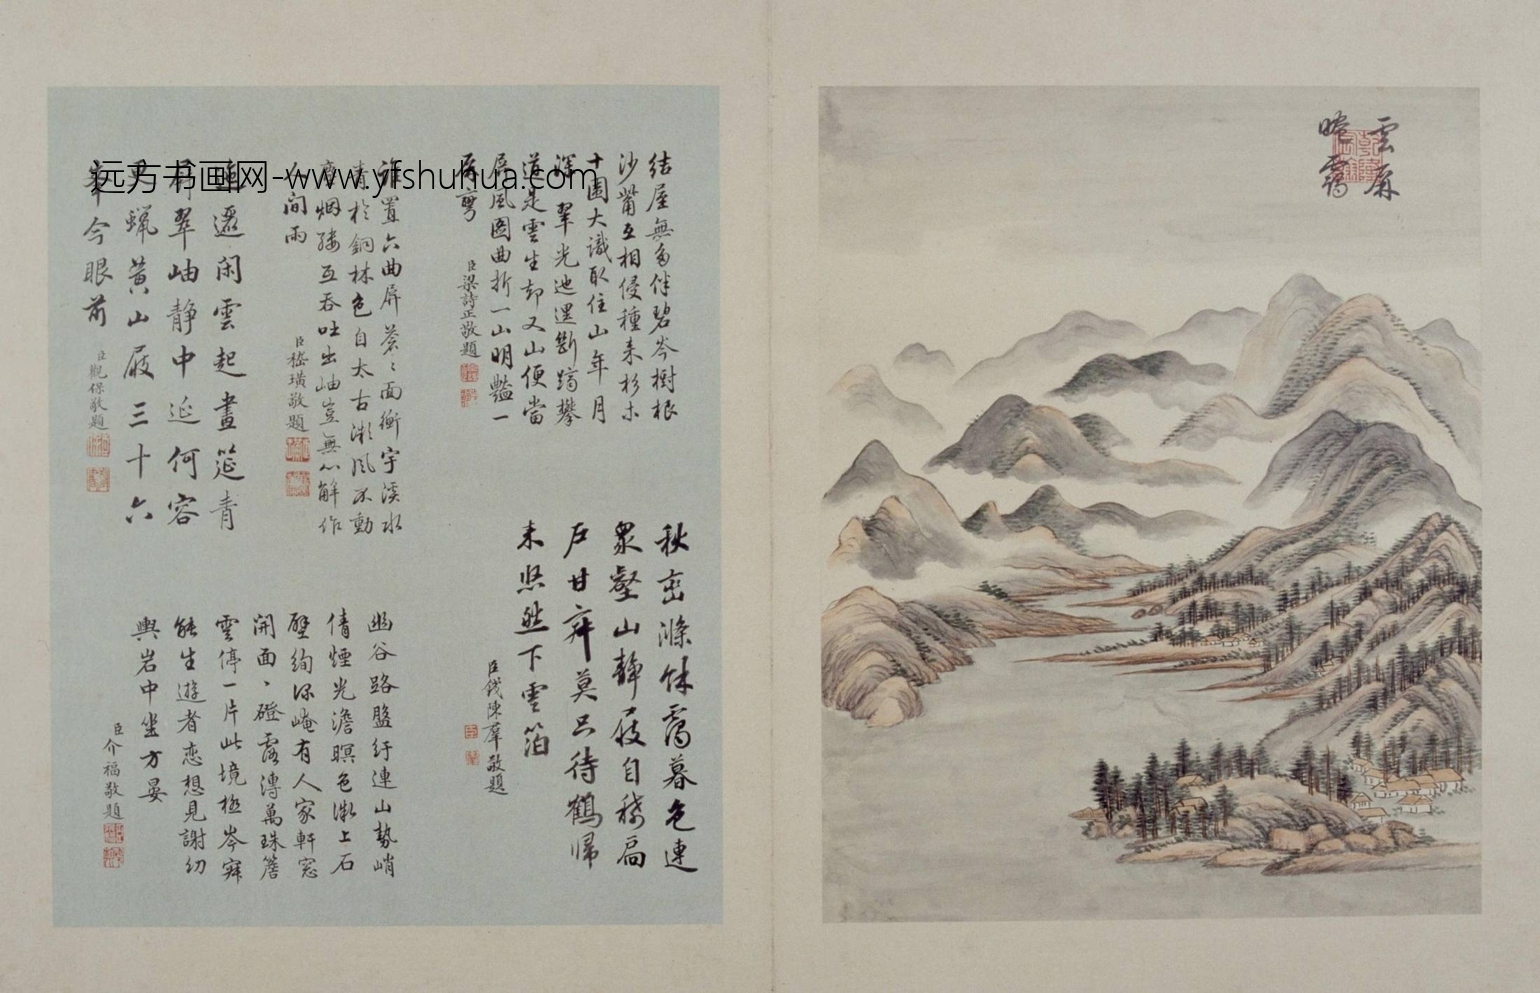 雲屏
曉靄
結屋無多伴碧岑樹根
沙觜互相侵種來杉木
十圍大識取住山年月
深 翠光迤邐斷躋攀
道是雲生却又山便當
屏風圖曲折一山明豔一
山彎
臣梁詩正敬題
秋巒滌沐靄暮色連
衆壑山靜屐自稀扃
戶甘弃莫只待鶴歸
未悠然下雲箔
臣錢陳羣敬題
誰置六曲屏蒼〻面衡宇溪水
青於銅林色自太古漱風不動
烟縷互吞吐出岫豈無心解作
人間雨
臣嵇璜敬題
幽谷路盤紆連山勢峭
倩煙光澹暝色漱上石
壁絢深崦有人家軒窓
開面〻磴露漙萬珠簷
雲停一片此境極岑寂
能生遊者戀想見謝幼
輿岩中坐方晏
臣介福敬題
迤邐閑雲起畫筵青
翠岫靜中延何容
蠟黃山屐三十六
峯今眼前
臣觀保敬題
远方书画网-www.yfshuhua.com